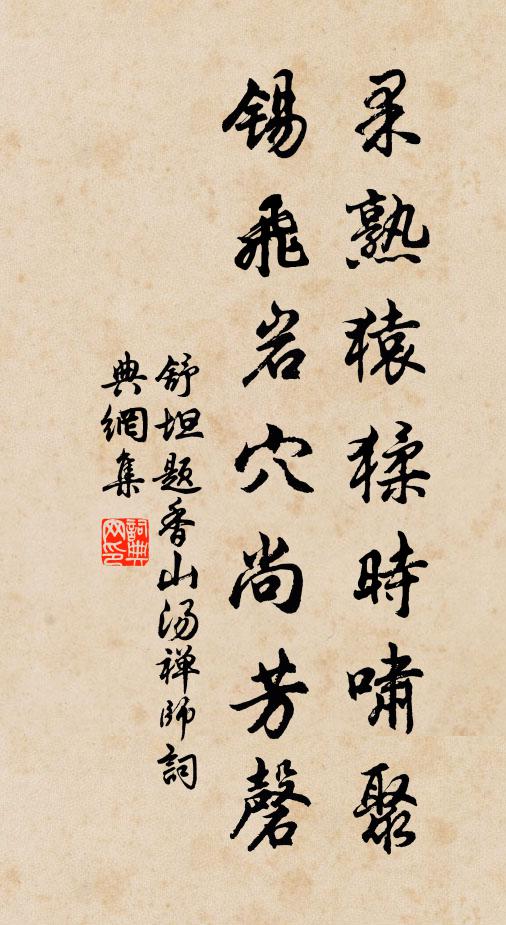 果熟猿猱時嘯聚
錫飛岩穴尚芳馨
舒坦题香山湯禅師詞
典網集
詞典
网印